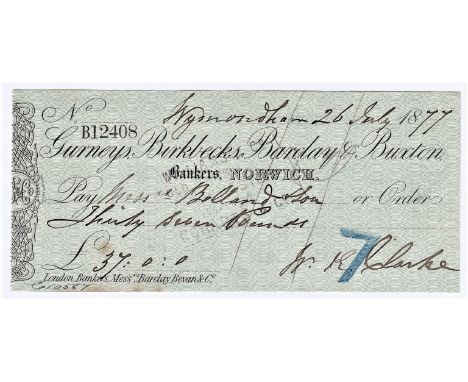 No
B12408
Wymondham 26 July 1877
Gurneys, Birkbecks, Barclay & Buxton,
Bankers, NORWICH.
Pay Messrs Bolland & Son or Order
Thirty Seven Pounds
£ 37 : 0 : 0
7
Wm R Clarke
London Bankers, Messrs Barclay Bevan & Co.